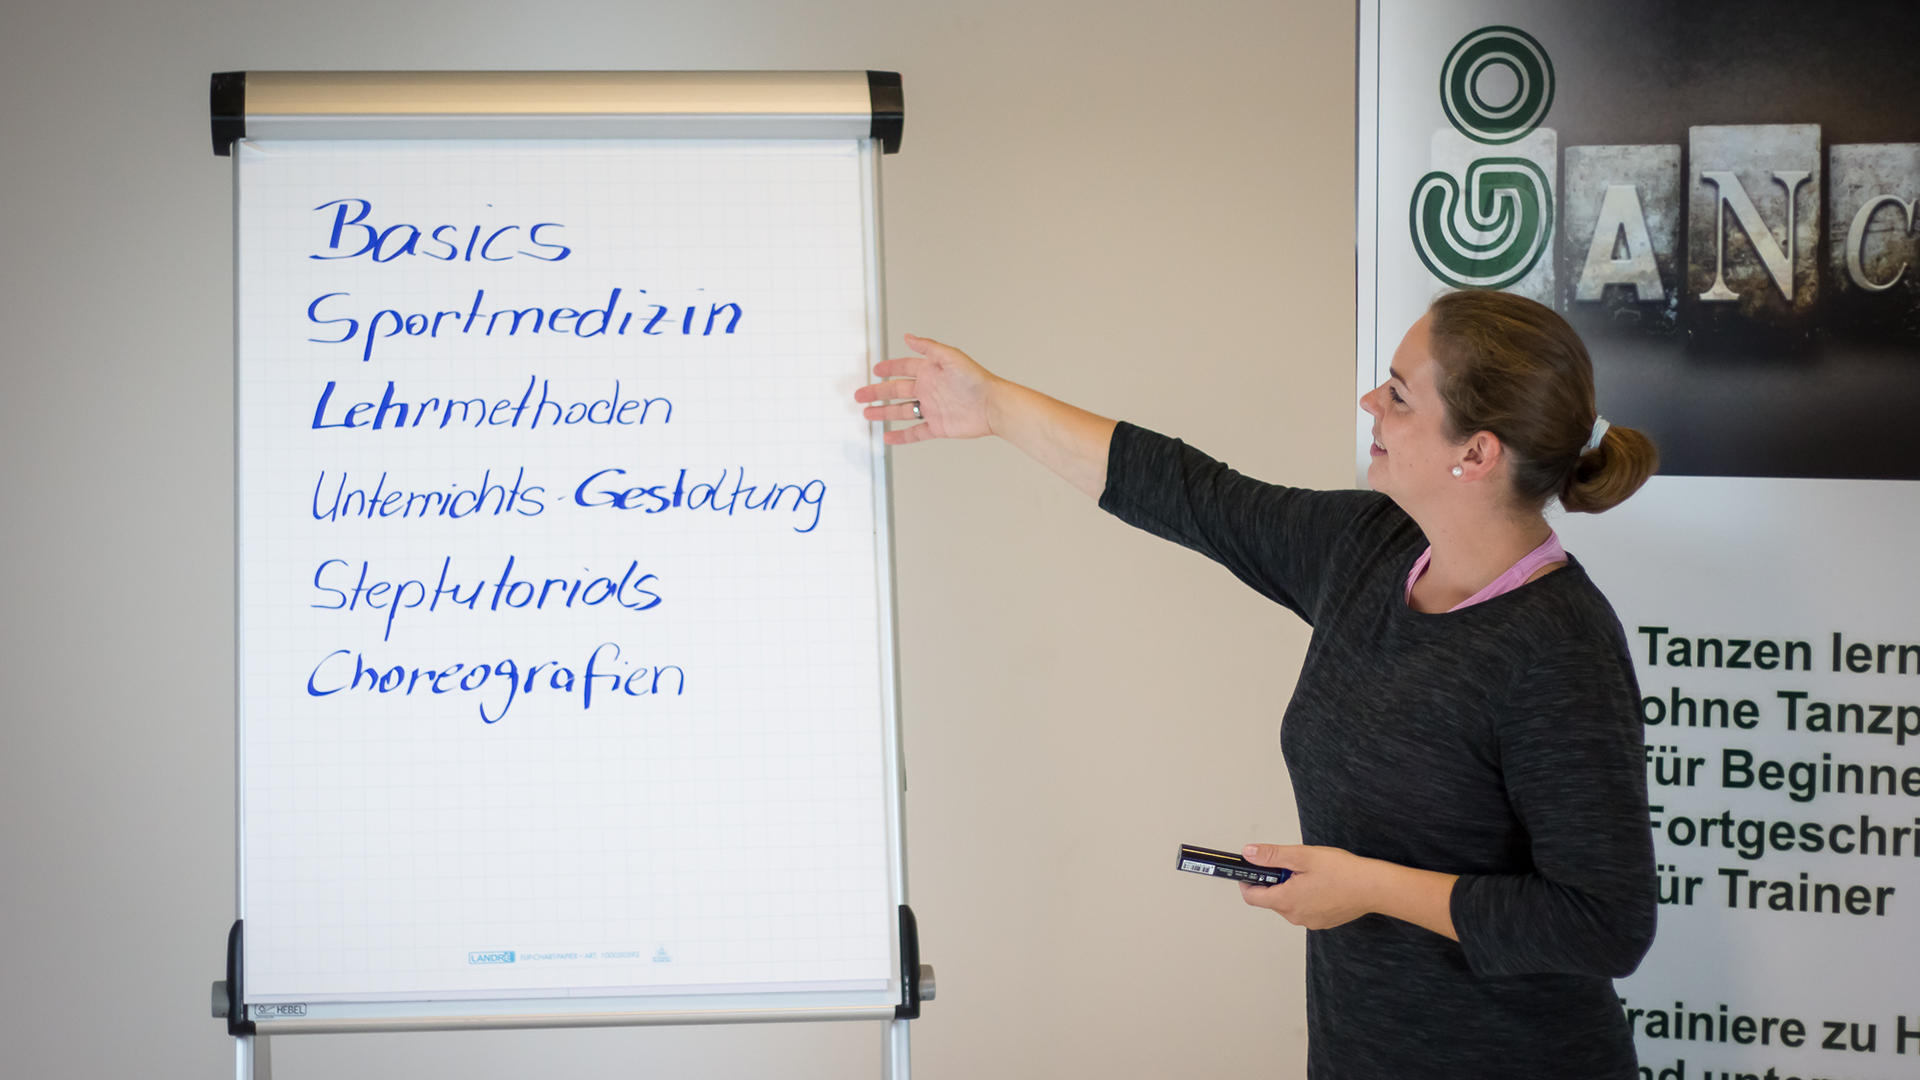 Basics
Sportmedizin
Lehrmethoden
Unterrichts-Gestaltung
Steptutorials
Choreografien
LANDRÉ FLIPCHARTPAPIER - ART.
HEBEL
ANC
Tanzen lern
ohne Tanzp
für Beginne
Fortgeschri
ür Trainer
rainiere zu H